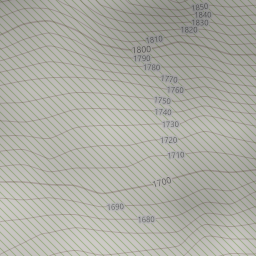 1850
1840
1830
1820
1810
1800
1790
1780
1770
1760
1750
1740
1730
1720
1710
1700
1690
1680